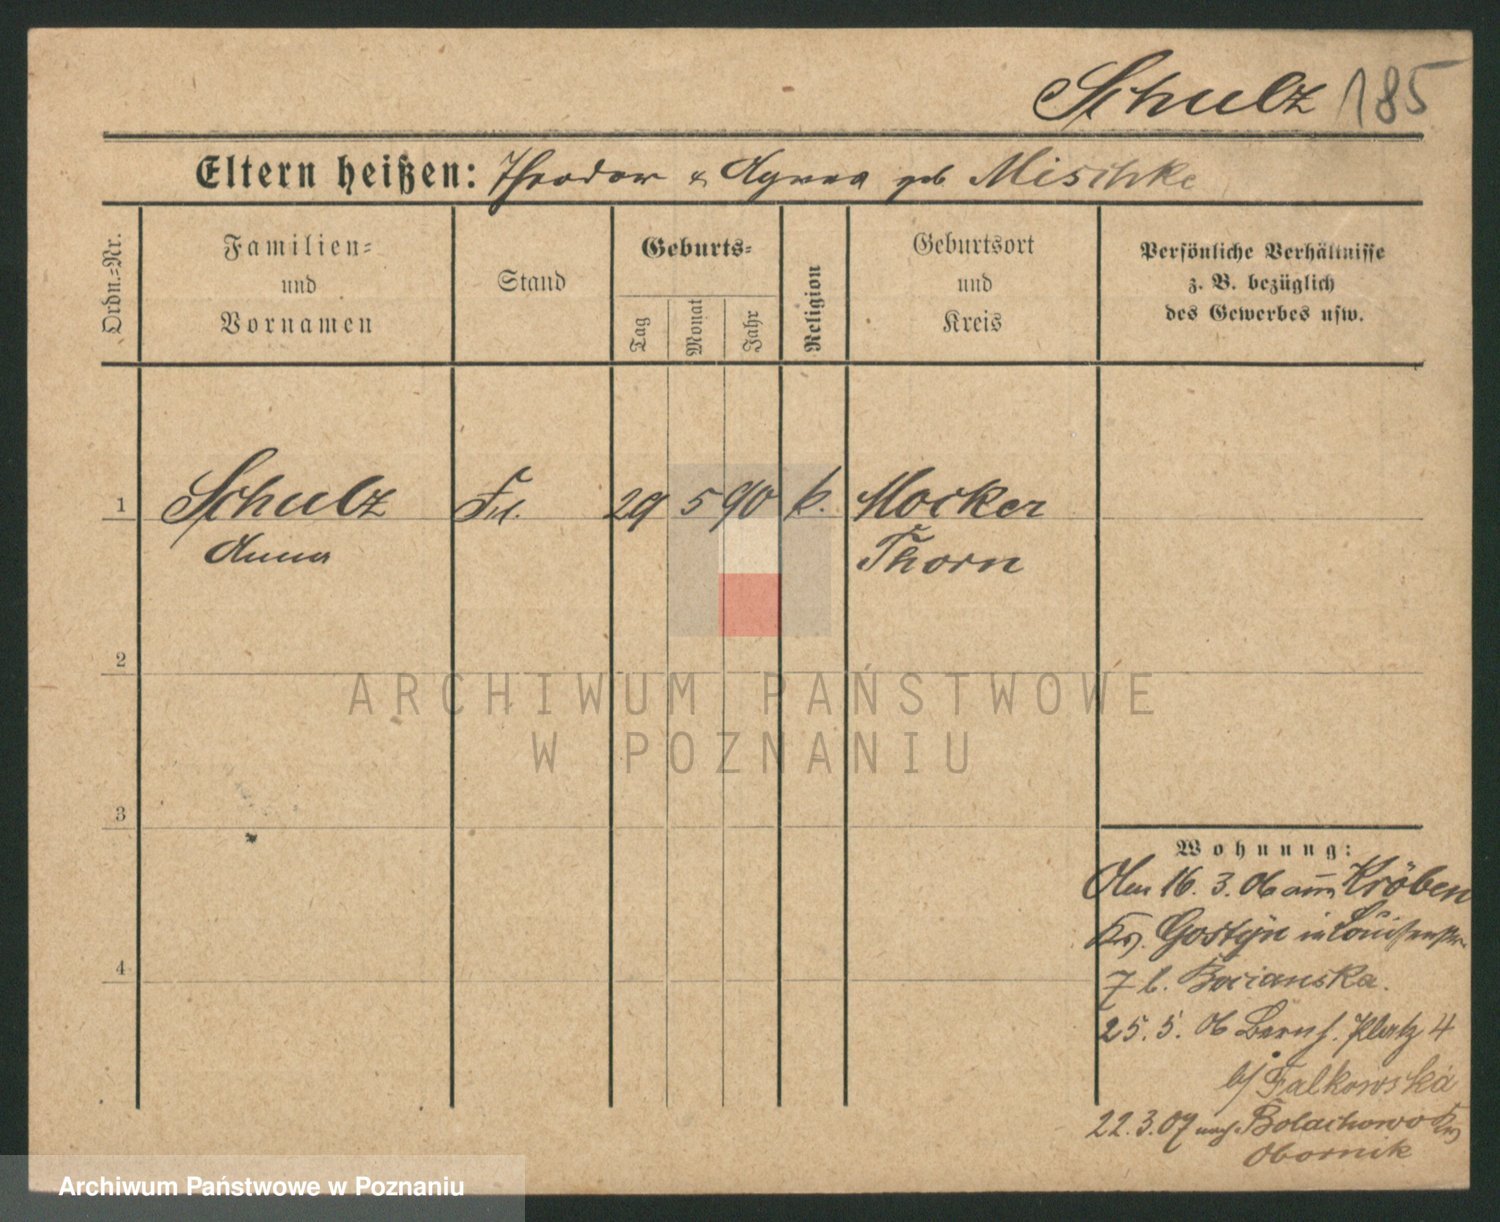 Schulz 185
Eltern heißen: Theodor & Agnes geb Mischke
Ordn.=Nr.
Familien=
und
Vornamen
Stand
Geburts=
Tag
Monat
Jahr
Religion
Geburtsort
und
Kreis
Persönliche Verhältnisse
z. B. bezüglich
des Gewerbes usw.
1 Schulz Frl. 29 5 90 k. Mocker
Anna Thorn
2
3
4
ARCHIWUM PAŃSTWOWE
W POZNANIU
Wohnung:
Den 16. 3. 06 aus Kröben
Krs. Gostyn in Louisenstr.
7 b. Bocianska.
25. 5. 06 Bernh. Platz 4
b/ Falkowska
22. 3. 07 nach Bolechowo Krs
Obornik
Archiwum Państwowe w Poznaniu